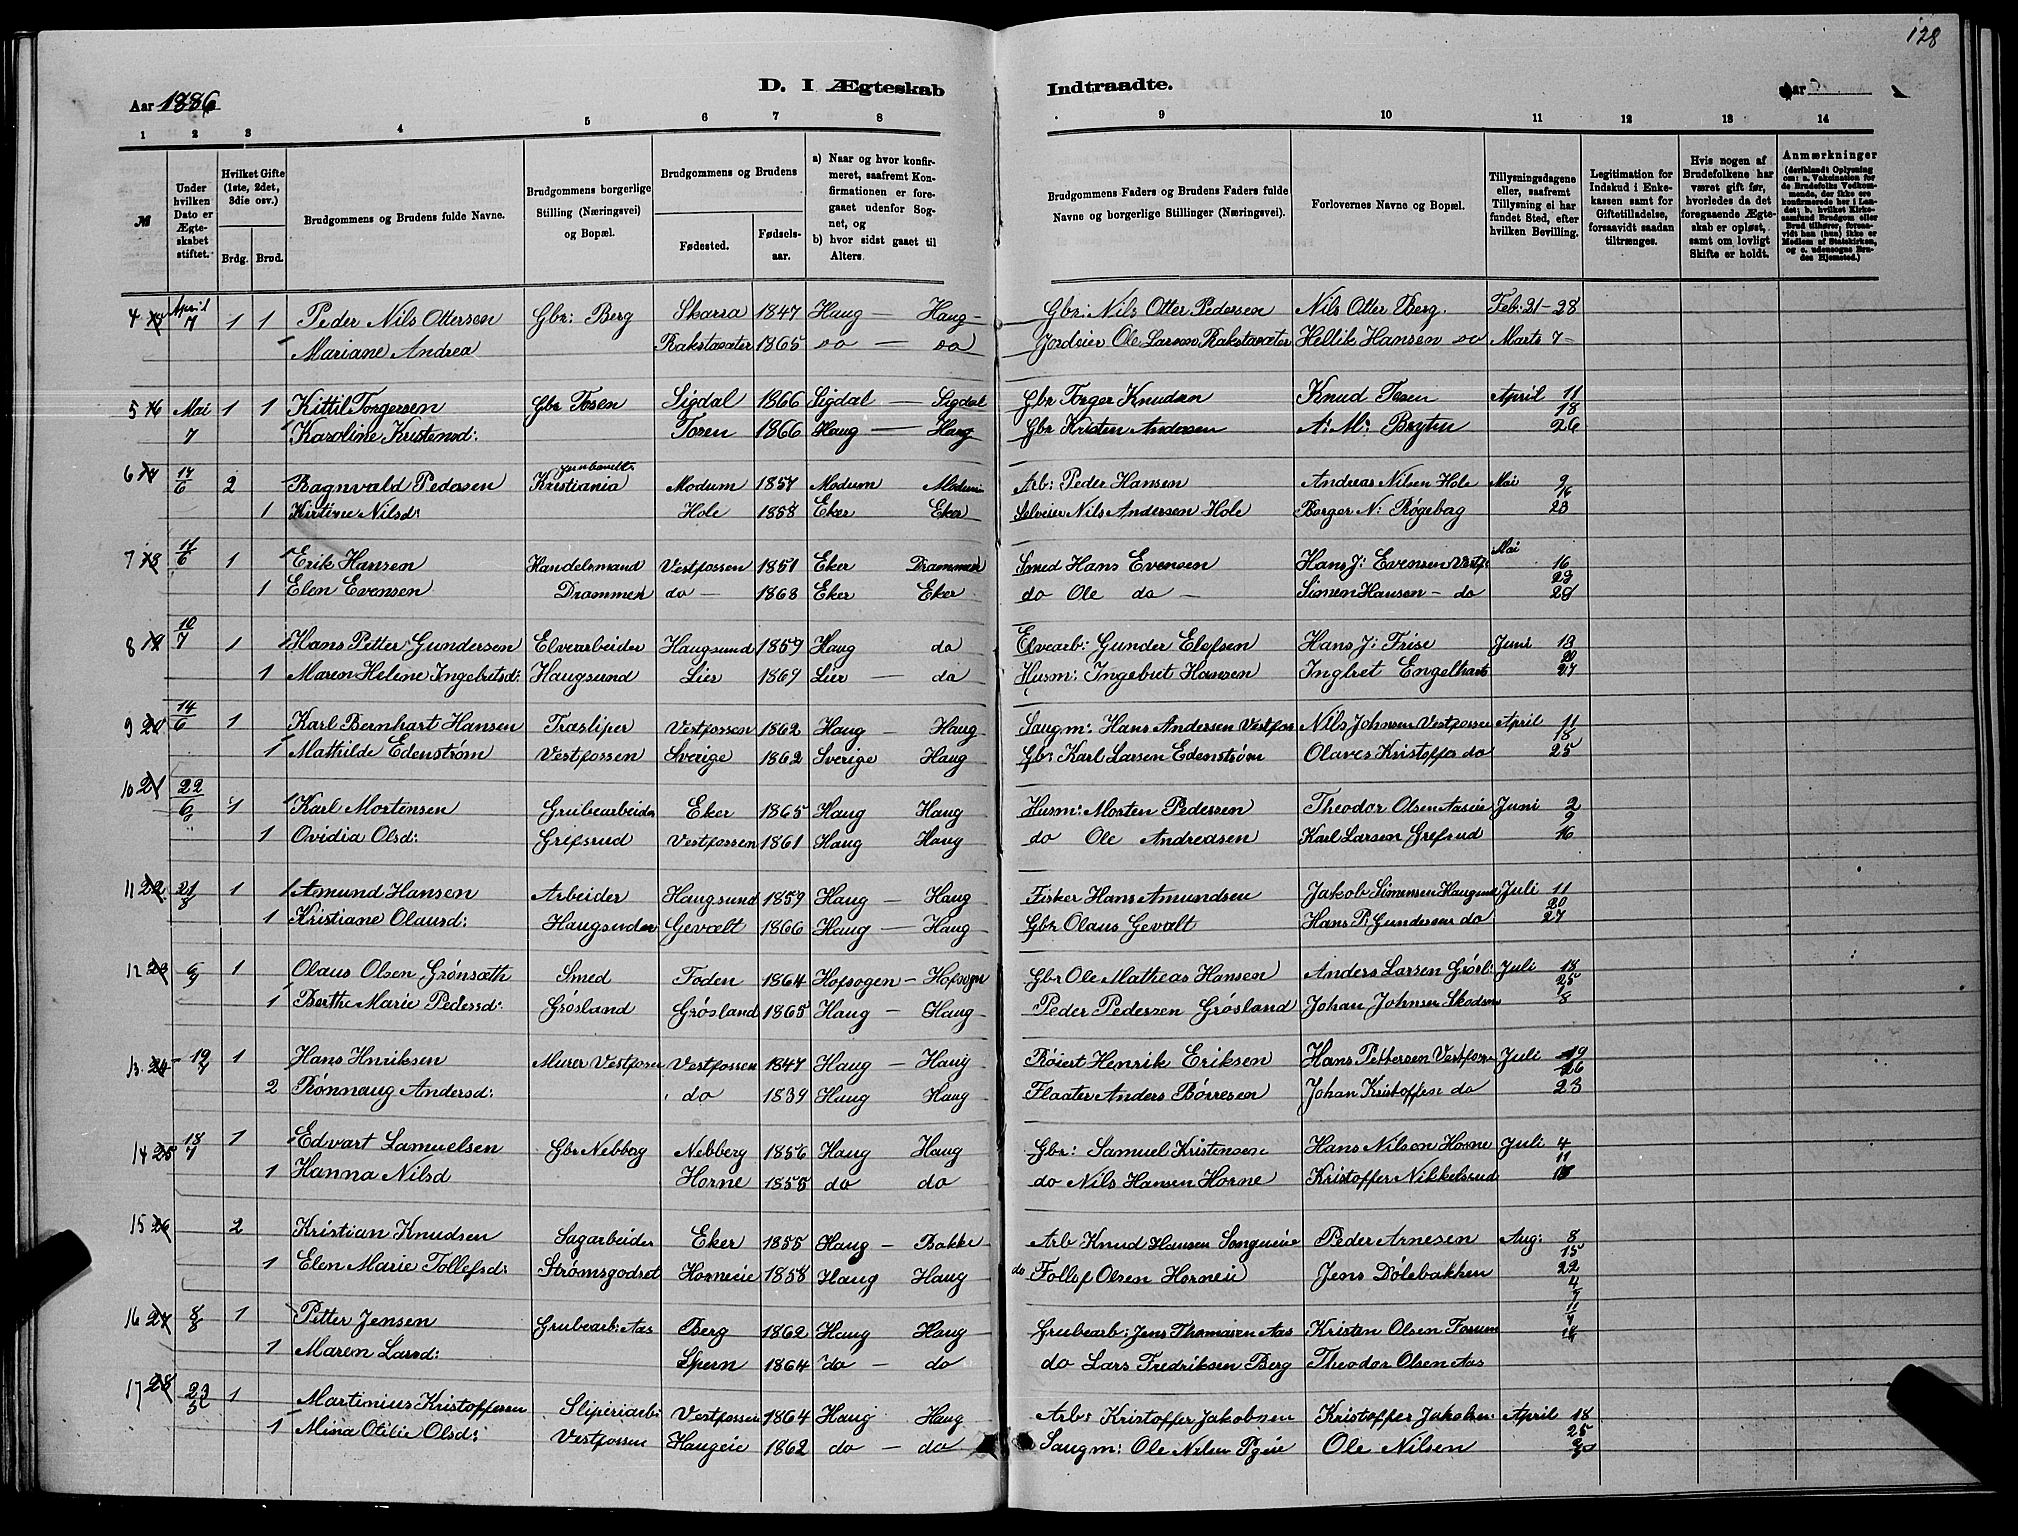 128
D. I Ægteskab Indtraadte.
Aar 1886
Aar
1 2 3 4 5 6 7 8 9 10 11 12 13 14
№
Under hvilken Dato er Ægteskabet stiftet.
Hvilket Gifte (1ste, 2det, 3die osv.)
Brdg. Brud.
Brudgommens og Brudens fulde Navne.
Brudgommens borgerlige Stilling (Næringsvei) og Bopæl.
Brudgommens og Brudens
Fødested.
Fødselsaar.
a) Naar og hvor konfirmeret, saafremt Konfirmationen er foregaaet udenfor Sognet, og
b) hvor sidst gaaet til Alters.
Brudgommens Faders og Brudens Faders fulde Navne og borgerlige Stillinger (Næringsvei).
Forlovernes Navne og Bopæl.
Tillysningsdagene eller, saafremt Tillysning ei har fundet Sted, efter hvilken Bevilling.
Legitimation for Indskud i Enkekassen samt for Giftetilladelse, forsaavidt saadan tiltrænges.
Hvis nogen af Brudefolkene har været gift før, hvorledes da det foregaaende Ægteskab er opløst, samt om lovligt Skifte er holdt.
Anmærkninger (deriblandt Oplysning om: a. Vakcination for de Brudefolks Vedkommende, der ikke ere konfirmerede her i Landet; b. hvilket Kirkesamfund Brudgom eller Brud tilhører, forsaavidt han (hun) ikke er Medlem af Statskirken, og c. udensogns Brudes Hjemsted.)
4 April 7 1 1 Peder Nils Ottersen Gbr: Berg Skarra 1847 Haug — Haug Gbr: Nils Otter Pedersen Nils Otter Berg. Feb: 21-28
Mariane Andrea Rakstasæter 1865 do — do Jordeier Ole Larsen Rakstasæter Hellik Hansen do Marts 7
5 16 Mai 1 1 Kittil Torgersen Gbr Tosen Sigdal 1866 Sigdal — Sigdal Gbr Torger Knudsen Knud Tosen April 11
18
7 Karoline Kristensd: Tosen 1866 Haug — Haug Gbr Kristen Andersen A: M: Bryten 26
6 17 17/6 2 Ragnvald Pedersen Kristiania Modum 1857 Modum Modum Arb: Peder Hansen Andreas Nilsen Hole Mai 9
16
1 Kirstine Nilsd: Hole 1858 Eker Eker Selveier Nils Andersen Hole Borger N: Røgebag 23
7 18 11/6 1 Erik Hansen Handelsmand Vestfossen 1851 Eker Drammen Smed Hans Evensen Hans J: Evensen Vestf: Mai 16
23
1 Elen Evensen Drammen do — 1868 Eker Eker do Ole do — Simen Hansen — do 29
8 19 10/7 1 Hans Petter Gundersen Elvearbeider Haugsund 1859 Haug do Elvearb: Gunder Elefsen Hans J: Frise Juni 13
20
1 Maren Helene Ingebretsd: Haugsund Lier 1869 Lier — do Husm: Ingebret Hansen Inglret Engelhart 27
9 20 14/6 1 Karl Bernhart Hansen Træsliper Vestfossen 1862 Haug — Haug Saugm: Hans Andersen Vestfos Nils Johnsen Vestfossen April 11
18
1 Mathilde Edenstrøm Vestfossen Sverige 1862 Sverige Haug Gbr: Karl Larsen Edenstrøm Olaves Kristoffes do 25
10 21 22/6 1 Karl Mortensen Grubearbeider Eker 1865 Haug Haug Husm: Morten Pedersen Theodor Olsen Aaseie Juni 2
9
1 Ovidia Olsd: Grefsrud Vestfossen 1861 Haug Haug do Ole Andreasen Karl Larsen Grefsrud 16
11 22 21/8 1 Amund Hansen Arbeider Haugsund 1859 Haug — Haug Fisker Hans Amundsen Jakob Simensen Haugsund Juli 11
20
1 Kristiane Olausd: Haugsunden Gevælt 1866 Haug — Haug Gbr Olaus Gevælt Hans P: Gundersen do 27
12 23 6/9 1 Olaus Olsen Grønsæth Smed Foden 1864 Hofsogen — Hofsogn Gbr Ole Mathias Hansen Anders Larsen Grøsl: Juli 18
25
1 Berthe Marie Pedersd: Grøsland Grøsland 1865 Haug — Haug Peder Pedersen Grøsland Johan Johnsen Skodsmo 1/8
13 24 19/7 1 Hans Henriksen Murer Vestfossen Vestfossen 1847 Haug — Haug Røiert Henrik Eriksen Hans Pettersen Vestfossen Juli 19
26
2 Rønnaug Andersd: do 1839 Haug Haug Flaater Anders Børresen Johan Kristoffsen do 23
14 25 18/7 1 Edvart Samuelsen Gbr Nebberg Nebberg 1856 Haug Haug Gbr: Samuel Kristensen Hans Nilsen Horne Juli 4
11
1 Hanna Nilsd Horne 1855 do do do Nils Hansen Horne Kristoffer Nikkelsrud 18
15 26 2 Kristian Knudsen Sagarbeider Eker 1855 Haug — Bakke Arb Knud Hansen Songneie Peder Arnesen Aug: 8
15
1 Elen Marie Tollefsd: Strømsgodset Horneie 1858 Haug Haug do Tollef Olsen Horneie Jens Dølebakken 22
4/7
16 27 8/8 1 Petter Jensen Grubearb: Aas Berg 1862 Haug Haug Grubearb: Jens Thomasen Aas Kristen Olsen Forum 11/7
18
1 Maren Larsd: Spern 1864 do — do do Lars Fredriksen Berg Theodor Olsen Aas
17 28 23/5 1 Martinius Kristoffersen Sliperiarb: Vestfossen 1864 Haug Haug Arb: Kristoffer Jakobsen Kristoffer Jakobsen April 18
25
1 Mina Otilie Olsd: Vestfossen Haugeie 1862 do — do Saugm: Ole Nilsen Ole Nilsen